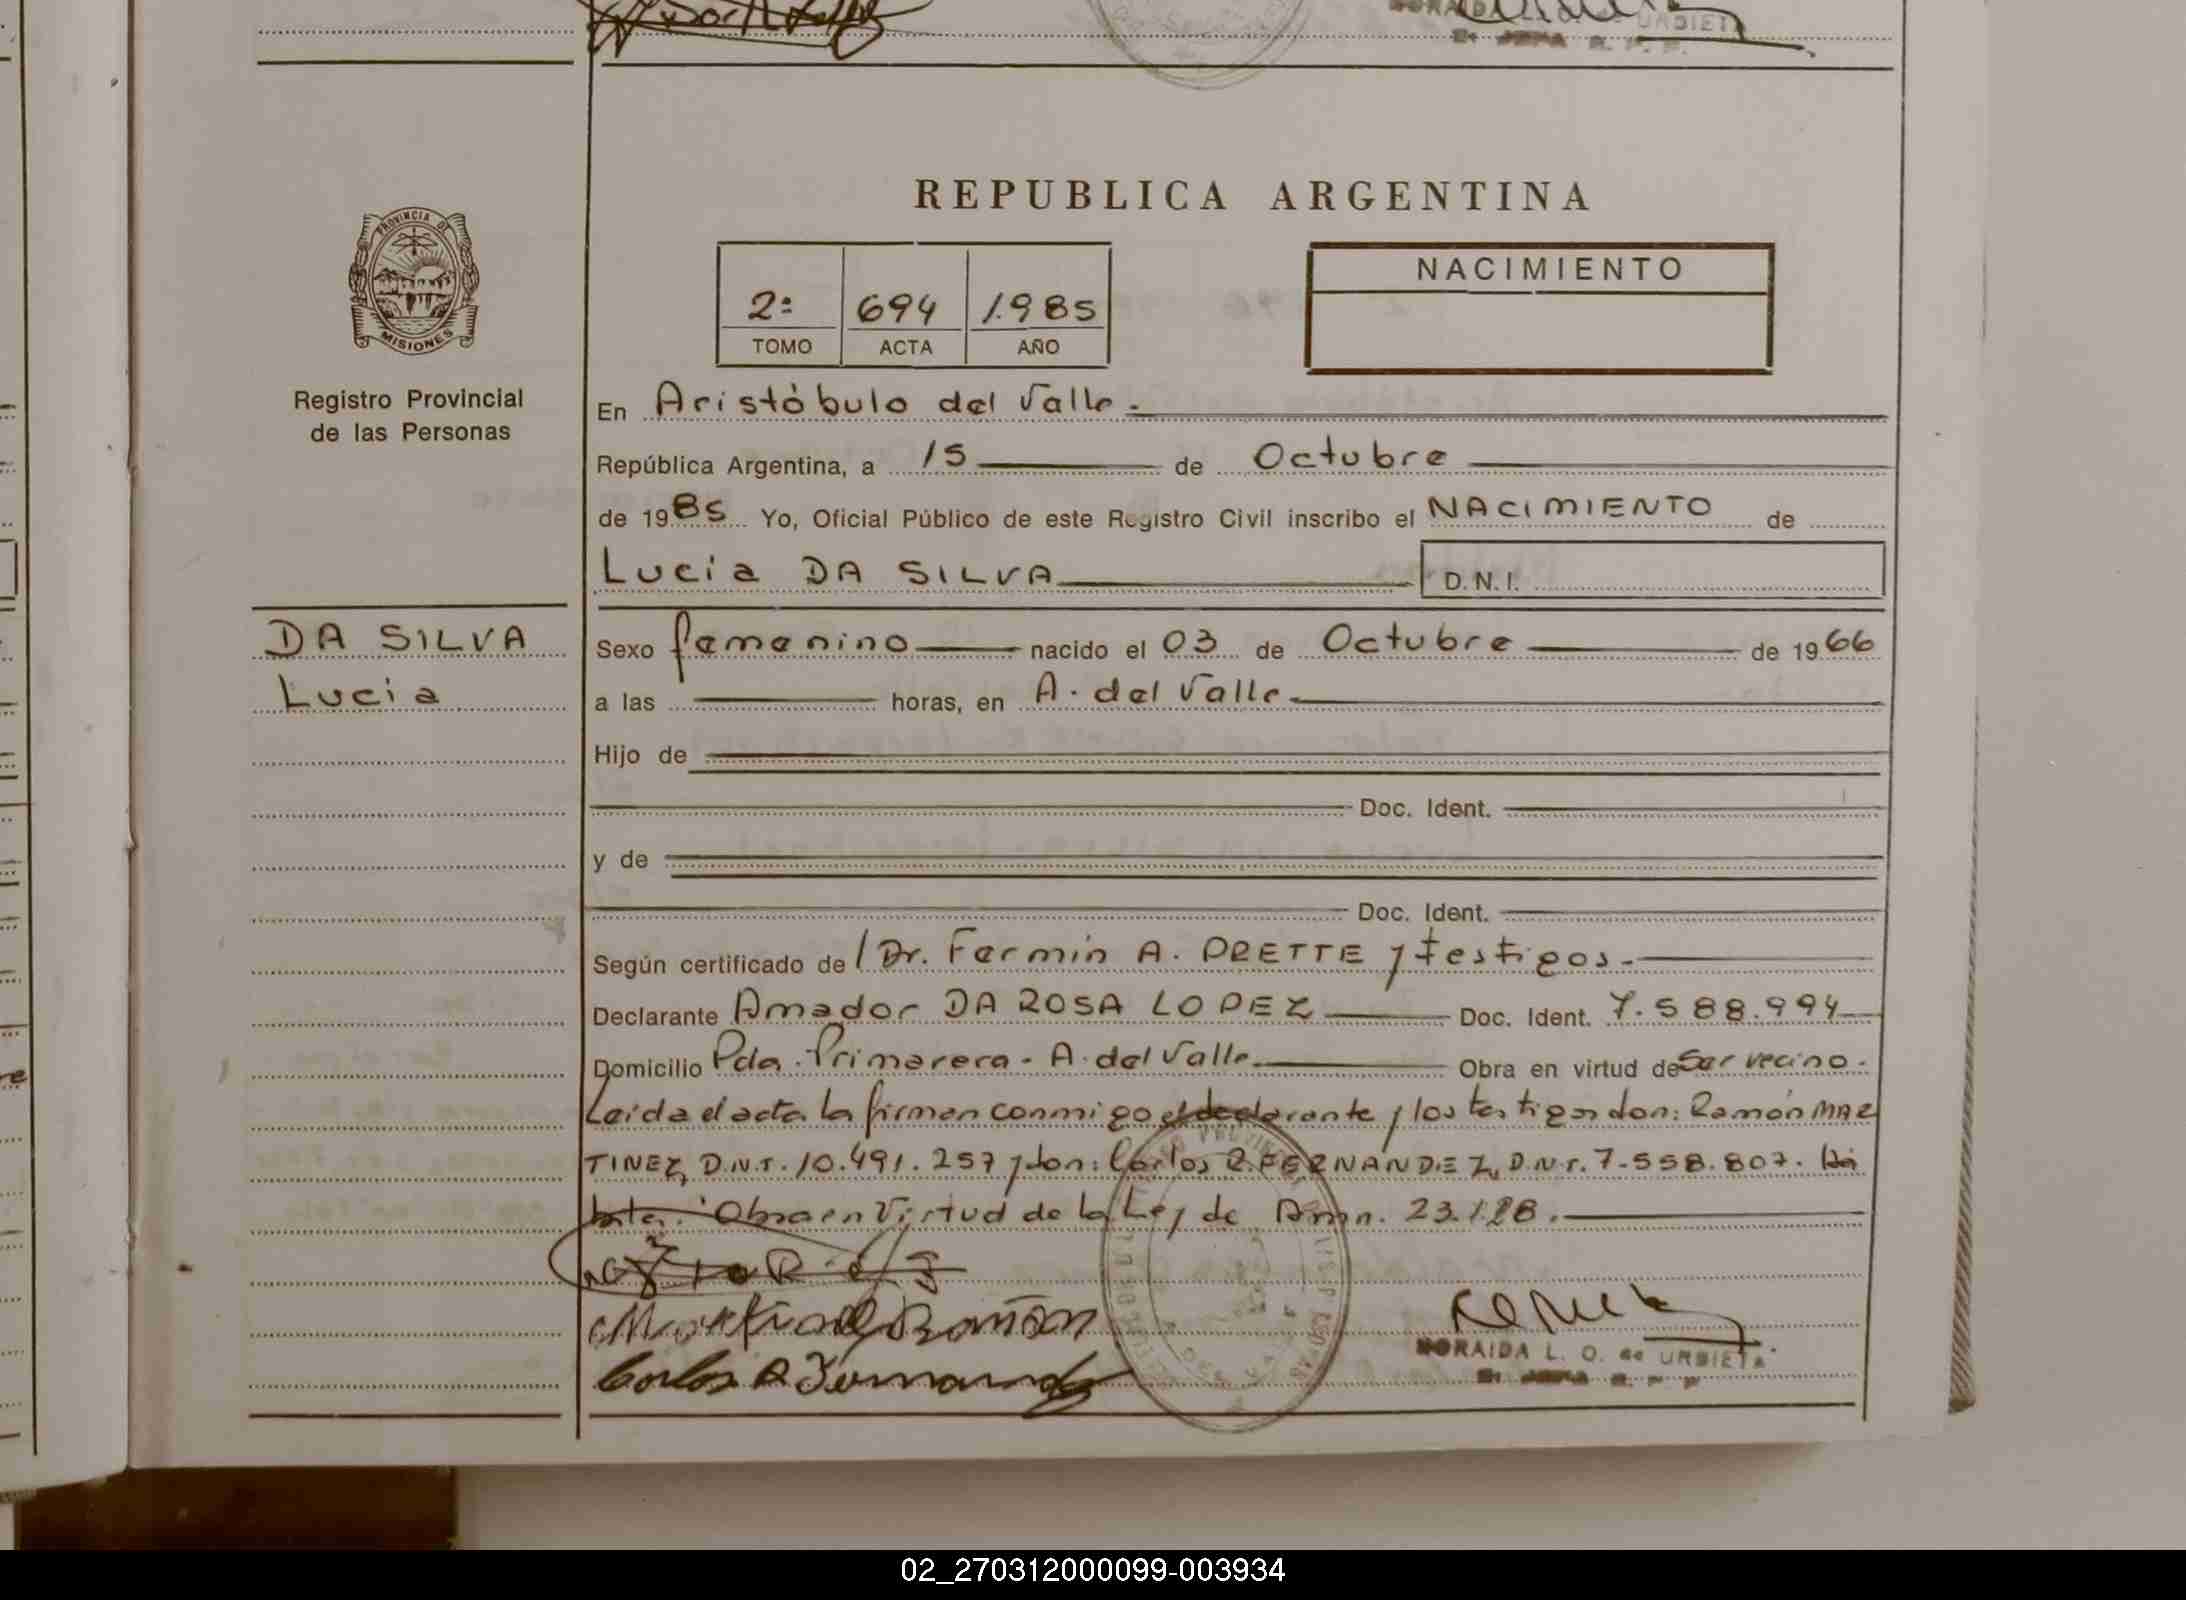 NORAIDA L. O. de URBIETA
REPUBLICA ARGENTINA
PROVINCIA DE
MISIONES
Registro Provincial
de las Personas
2º 694 1.985
TOMO ACTA AÑO
NACIMIENTO
En Aristóbulo del Valle.-
República Argentina, a 15 de Octubre
de 1985 Yo, Oficial Público de este Registro Civil inscribo el NACIMIENTO de
Lucia DA SILVA D.N.I.
DA SILVA
Lucia
Sexo femenino nacido el 03 de Octubre de 1966
a las horas, en A. del Valle
Hijo de
Doc. Ident.
y de
Doc. Ident.
Según certificado de l Dr. Fermín A. PRETTE y testigos.-
Declarante Amador DA ROSA LOPEZ Doc. Ident. 7.588.994
Domicilio Pda. Primavera - A. del Valle Obra en virtud de Ser vecino.-
Leida el acta la firman conmigo el declarante y los testigos don: Ramón MAR
TINEZ, D.N.I. 10.491.257 y don: Carlos R. FERNANDEZ, D.N.I. 7.558.807.
Obra en Virtud de la Ley de Amn. 23.128.
Ramon
Carlos R Fernandez
NORAIDA L. O. de URBIETA
02_270312000099-003934